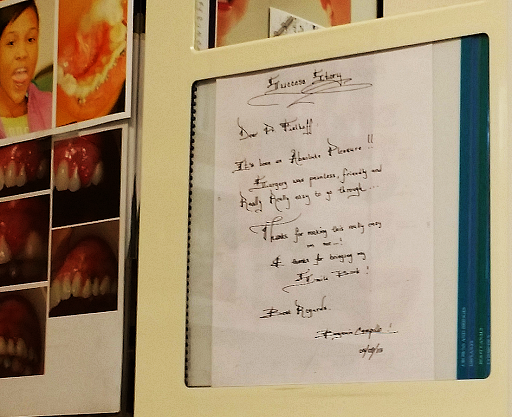 Success Story
Dear Dr.
It's been an Absolute Pleasure !!
Surgery was painless, friendly and
Really Really easy to go through...
Thanks for making this really easy
on me...!
& thanks for bringing my
Smile Back !
Best Regards.
Benjamin !